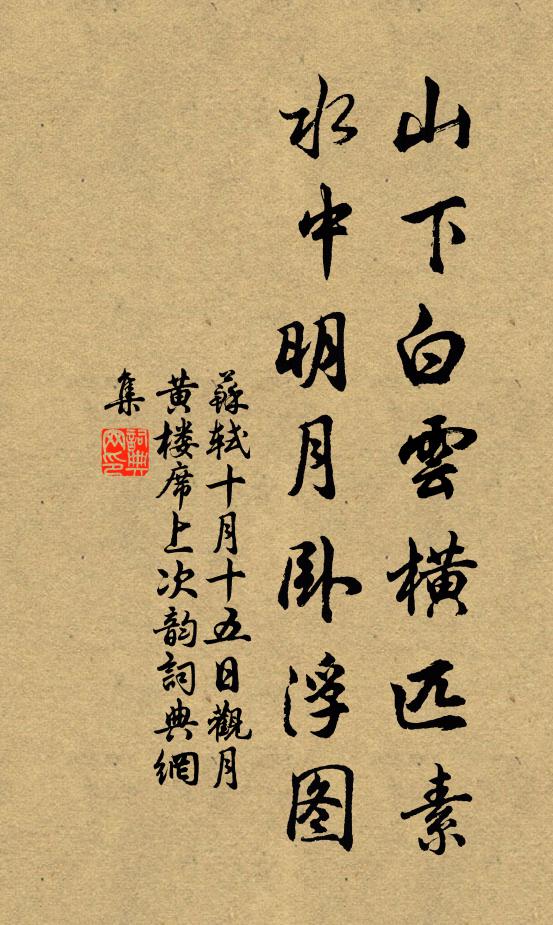 山下白雲橫匹素
水中明月卧浮图
蘇軾十月十五日觀月
黄楼席上次韵詞典網
集
詞典
网印